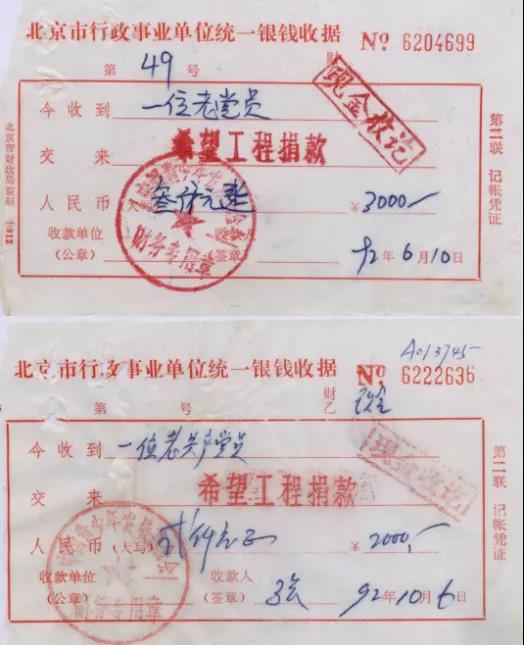 北京市行政事业单位统一银钱收据 财 № 6204699
第 49 号
现金收讫
今收到 一位老党员
交来 希望工程捐款
人民币 叁仟元正 ￥3000—
收款单位 收款人
(公章) (签章) 92年6月10日
财务专用章
第二联 记帐凭证
北京市财政局监制
A013745
北京市行政事业单位统一银钱收据 财 № 6222636
第 号 乙 现金
现金收讫
今收到 一位老共产党员
交来 希望工程捐款
人民币(大写) 贰仟元正 ￥2000—
收款单位 收款人
(公章) (签章) 92年10月6日
中国青少年发展基金会
财务专用章
第二联 记帐凭证